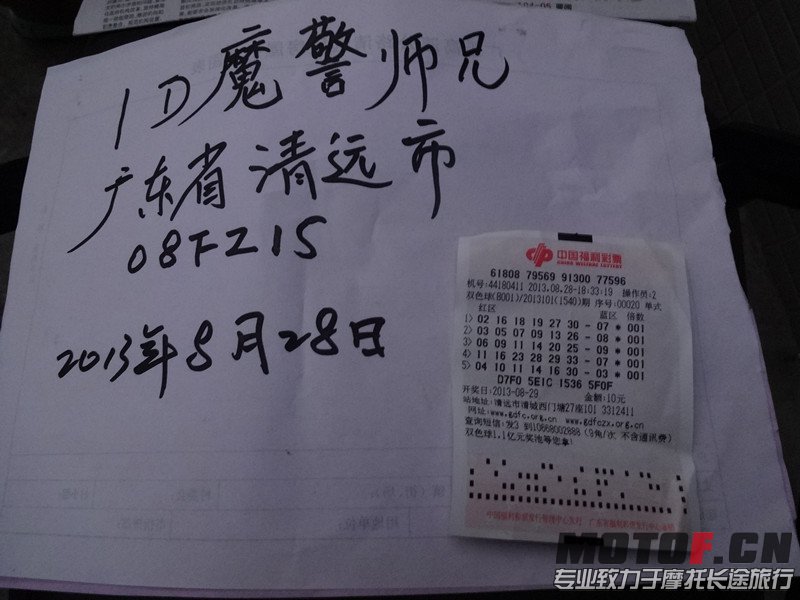 ID魔警师兄
广东省清远市
08FZ15
2013年8月28日
中国福利彩票
CHINA WELFARE LOTTERY
61808 79569 91300 77596
机号:44180411 2013.08.28-18:33:19 操作员:2
双色球(B001)/2013101(1540)期 序号:00020 单式
红区 蓝区 倍数
1> 02 16 18 19 27 30 - 07 * 001
2> 03 05 07 09 13 26 - 08 * 001
3> 06 09 11 14 20 25 - 09 * 001
4> 11 16 23 28 29 33 - 07 * 001
5> 04 10 11 14 16 30 - 03 * 001
D7F0 5E1C 1536 5F0F
开奖日:2013-08-29 金额:10元
站地址:清远市清城西门塘27座101 3312411
网址:www.gdfc.org.cn www.gdfczx.org.cn
查询短信:发3 到10668002888 (3角/次 不含通讯费)
双色球1.1亿元奖池等您拿!
中国福利彩票发行管理中心发行 广东省福利彩票发行中心承销
MOTOF.CN
专业致力于摩托长途旅行